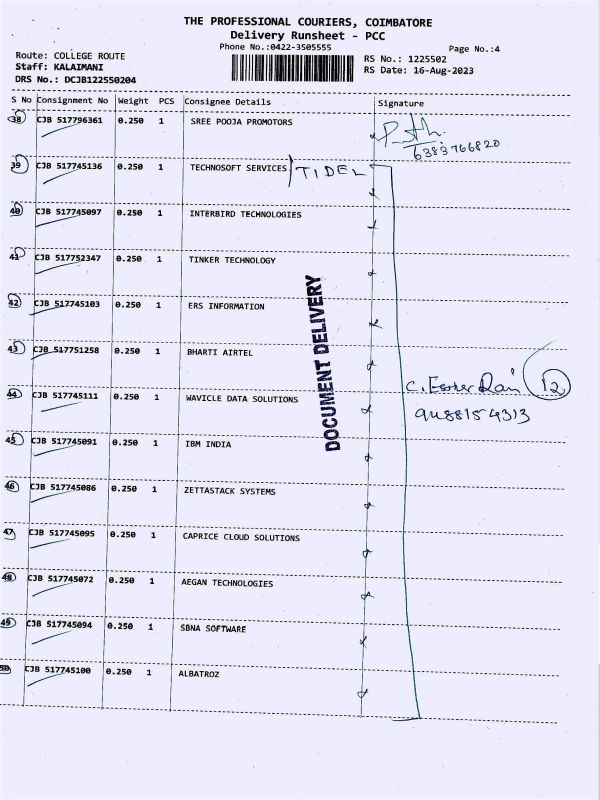 THE PROFESSIONAL COURIERS, COIMBATORE
Delivery Runsheet - PCC
Phone No.:0422-3505555
Page No.:4
Route: COLLEGE ROUTE
RS No.: 1225502
Staff: KALAIMANI
RS Date: 16-Aug-2023
DRS No.: DCJB122550204
S No Consignment No Weight PCS Consignee Details Signature
38 CJB 517796361 0.250 1 SREE POOJA PROMOTORS
6383766820
39 CJB 517745136 0.250 1 TECHNOSOFT SERVICES TIDEL
40 CJB 517745097 0.250 1 INTERBIRD TECHNOLOGIES
41 CJB 517752347 0.250 1 TINKER TECHNOLOGY
42 CJB 517745103 0.250 1 ERS INFORMATION
43 CJB 517751258 0.250 1 BHARTI AIRTEL
DOCUMENT DELIVERY
12
44 CJB 517745111 0.250 1 WAVICLE DATA SOLUTIONS
9488154313
45 CJB 517745091 0.250 1 IBM INDIA
46 CJB 517745086 0.250 1 ZETTASTACK SYSTEMS
47 CJB 517745095 0.250 1 CAPRICE CLOUD SOLUTIONS
48 CJB 517745072 0.250 1 AEGAN TECHNOLOGIES
49 CJB 517745094 0.250 1 SBNA SOFTWARE
50 CJB 517745100 0.250 1 ALBATROZ